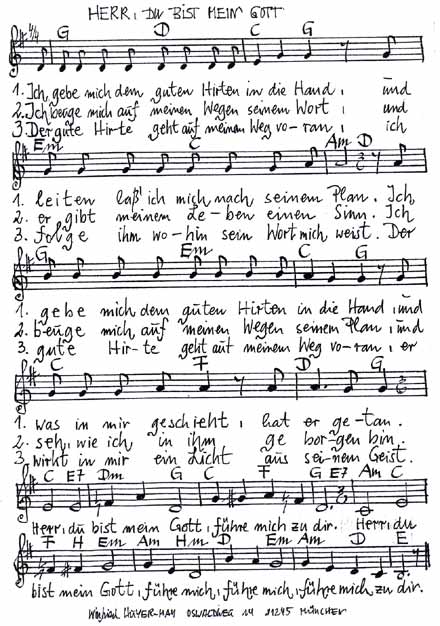 HERR, DU BIST MEIN GOTT
4/4 G D C G
1. Ich gebe mich dem guten Hirten in die Hand, und
2. Ich beuge mich auf meinen Wegen seinem Wort, und
3. Der gute Hirte geht auf meinem Weg vo-ran, ich
Em C Am D
1. leiten laß' ich mich nach seinem Plan. Ich
2. er gibt meinem Le-ben einen Sinn. Ich
3. folge ihm wo-hin sein Wort mich weist. Der
G Em C G
1. gebe mich dem guten Hirten in die Hand, und
2. beuge mich auf meinen Wegen seinem Plan, und
3. gute Hir-te geht auf meinem Weg vo-ran, er
C F D G
1. was in mir geschieht, hat er ge-tan.
2. seh, wie ich in ihm ge bor-gen bin.
3. wirkt in mir ein Licht aus sei-nem Geist.
C E7 Dm G C F G E7 Am C
Herr, du bist mein Gott, führe mich zu dir. Herr, du
F H Em Am Hm D Em Am D E
bist mein Gott, führe mich, führe mich, führe mich zu dir.
MÜNCHEN